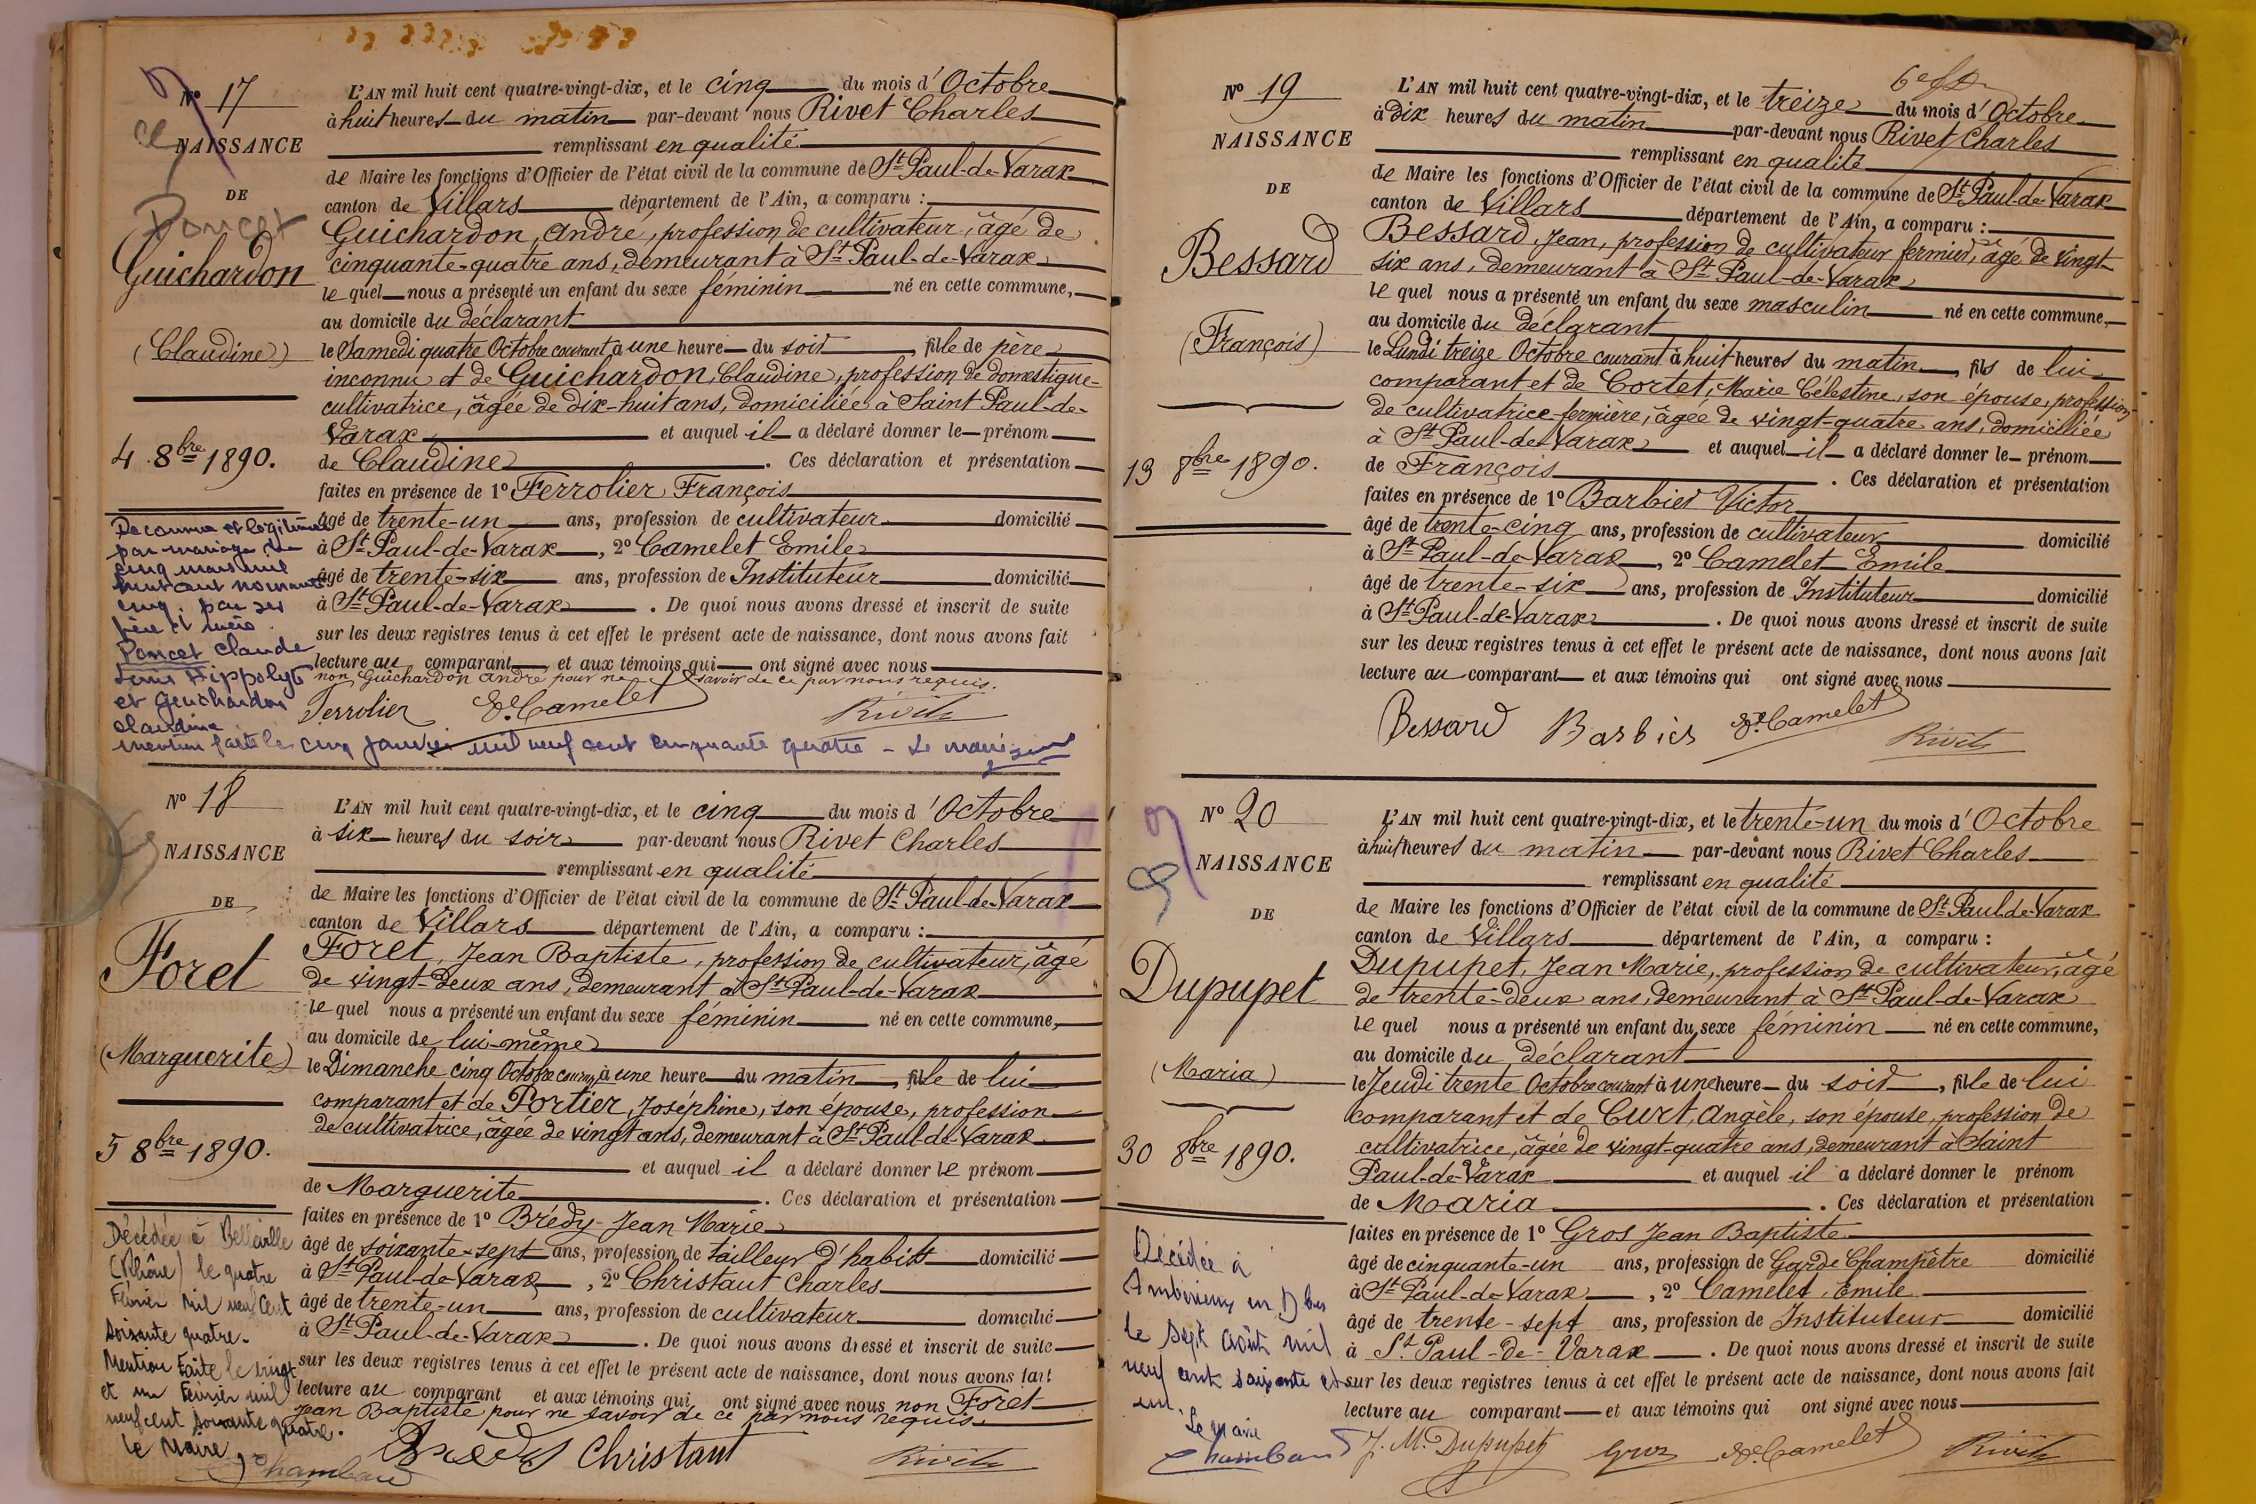 Nº 17
NAISSANCE
DE
Poncet
Guichardon
(Claudine)
4 8bre 1890.
Reconnue et légitimée
par mariage le
cinq mars mil
huit cent nonante
cinq. par ses
père et mère
Poncet Claude
Hippolyte
et Guichardon
Claudine
mention faite le cinq janvier mil neuf cent cinquante quatre - Le maire
L'AN mil huit cent quatre-vingt-dix, et le cinq du mois d'Octobre
à huit heures du matin par-devant nous Rivet Charles
remplissant en qualité
de Maire les fonctions d'Officier de l'état civil de la commune de St Paul-de-Varax
canton de Villars département de l'Ain, a comparu :
Guichardon, André, profession de cultivateur, âgé de
cinquante-quatre ans, demeurant à St Paul-de-Varax
le quel nous a présenté un enfant du sexe féminin né en cette commune,
au domicile du déclarant
le Samedi quatre Octobre courant à une heure du soir, fille de père
inconnu et de Guichardon, Claudine, profession de domestique-
cultivatrice, âgée de dix-huit ans, domiciliée à Saint-Paul-de-
Varax et auquel il a déclaré donner le prénom
de Claudine. Ces déclaration et présentation
faites en présence de 1º Ferrolier François
âgé de trente-un ans, profession de cultivateur domicilié
à St Paul-de-Varax, 2º Camelet Emile
âgé de trente-six ans, profession de Instituteur domicilié
à St Paul-de-Varax. De quoi nous avons dressé et inscrit de suite
sur les deux registres tenus à cet effet le présent acte de naissance, dont nous avons fait
lecture au comparant et aux témoins qui ont signé avec nous
non Guichardon André pour ne savoir de ce par nous requis.
Ferrolier E. Camelet Rivet
Nº 18
NAISSANCE
DE
Foret
(Marguerite)
5 8bre 1890.
Décédée à Belleville
(Rhône) le quatre
Février mil neuf cent
soixante quatre.
Mention faite le vingt
et un Février mil
neuf cent soixante quatre.
Le Maire
Chambard
L'AN mil huit cent quatre-vingt-dix, et le cinq du mois d'Octobre
à six heures du soir par-devant nous Rivet Charles
remplissant en qualité
de Maire les fonctions d'Officier de l'état civil de la commune de St Paul-de-Varax
canton de Villars département de l'Ain, a comparu :
Foret, Jean Baptiste, profession de cultivateur, âgé
de vingt-deux ans, demeurant à St Paul-de-Varax
le quel nous a présenté un enfant du sexe féminin né en cette commune,
au domicile de lui-même
le Dimanche cinq Octobre courant à une heure du matin, fille de lui
comparant et de Portier, Joséphine, son épouse, profession
de cultivatrice, âgée de vingt ans, demeurant à St Paul-de-Varax
et auquel il a déclaré donner le prénom
de Marguerite. Ces déclaration et présentation
faites en présence de 1º Brédy Jean Marie
âgé de soixante-sept ans, profession de tailleur d'habits domicilié
à St Paul-de-Varax, 2º Christaut Charles
âgé de trente-un ans, profession de cultivateur domicilié
à St Paul-de-Varax. De quoi nous avons dressé et inscrit de suite
sur les deux registres tenus à cet effet le présent acte de naissance, dont nous avons fait
lecture au comparant et aux témoins qui ont signé avec nous non Foret
Jean Baptiste pour ne savoir de ce par nous requis.
Bredy Christaut Rivet
Nº 19
NAISSANCE
DE
Bessard
(François)
13 8bre 1890.
L'AN mil huit cent quatre-vingt-dix, et le treize du mois d'Octobre
à dix heures du matin par-devant nous Rivet Charles
remplissant en qualité
de Maire les fonctions d'Officier de l'état civil de la commune de St Paul-de-Varax
canton de Villars département de l'Ain, a comparu :
Bessard, Jean, profession de cultivateur fermier, âgé de vingt-
six ans, demeurant à St Paul-de-Varax
le quel nous a présenté un enfant du sexe masculin né en cette commune,
au domicile du déclarant
le Lundi treize Octobre courant à huit heures du matin, fils de lui
comparant et de Cortet, Marie Célestine, son épouse, profession
de cultivatrice-fermière, âgée de vingt-quatre ans, domiciliée
à St Paul-de-Varax et auquel il a déclaré donner le prénom
de François. Ces déclaration et présentation
faites en présence de 1º Barbier Victor
âgé de trente-cinq ans, profession de cultivateur domicilié
à St Paul-de-Varax, 2º Camelet Emile
âgé de trente-six ans, profession de Instituteur domicilié
à St Paul-de-Varax. De quoi nous avons dressé et inscrit de suite
sur les deux registres tenus à cet effet le présent acte de naissance, dont nous avons fait
lecture au comparant et aux témoins qui ont signé avec nous
Bessard Barbier E. Camelet Rivet
Nº 20
NAISSANCE
DE
Dupupet
(Maria)
30 8bre 1890.
Décédée à
Ambérieux en Dbes
le sept août mil
neuf cent soixante et
un.
Le maire
Chambard
L'AN mil huit cent quatre-vingt-dix, et le trente-un du mois d'Octobre
à huit heures du matin par-devant nous Rivet Charles
remplissant en qualité
de Maire les fonctions d'Officier de l'état civil de la commune de St Paul-de-Varax
canton de Villars département de l'Ain, a comparu :
Dupupet, Jean Marie, profession de cultivateur, âgé
de trente-deux ans, demeurant à St Paul-de-Varax
le quel nous a présenté un enfant du sexe féminin né en cette commune,
au domicile du déclarant
le Jeudi trente Octobre courant à une heure du soir, fille de lui
comparant et de Curt, Angèle, son épouse, profession de
cultivatrice, âgée de vingt-quatre ans, demeurant à Saint
Paul-de-Varax et auquel il a déclaré donner le prénom
de Maria. Ces déclaration et présentation
faites en présence de 1º Gros Jean Baptiste
âgé de cinquante-un ans, profession de Garde Champêtre domicilié
à St Paul-de-Varax, 2º Camelet Emile
âgé de trente-sept ans, profession de Instituteur domicilié
à St Paul-de-Varax. De quoi nous avons dressé et inscrit de suite
sur les deux registres tenus à cet effet le présent acte de naissance, dont nous avons fait
lecture au comparant et aux témoins qui ont signé avec nous
J. M. Dupupet Gros E. Camelet Rivet